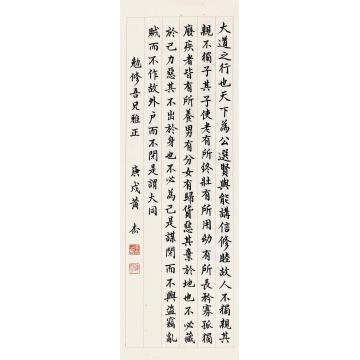 大道之行也天下為公選賢與能講信修睦故人不獨親其
親不獨子其子使老有所終壯有所用幼有所長矜寡孤獨
廢疾者皆有所養男有分女有歸貨惡其棄於地也不必藏
於己力惡其不出於身也不必為己是謀閉而不興盜竊亂
賊而不作故外戶而不閉是謂大同
勉修吾兄雅正
庚戌蕭